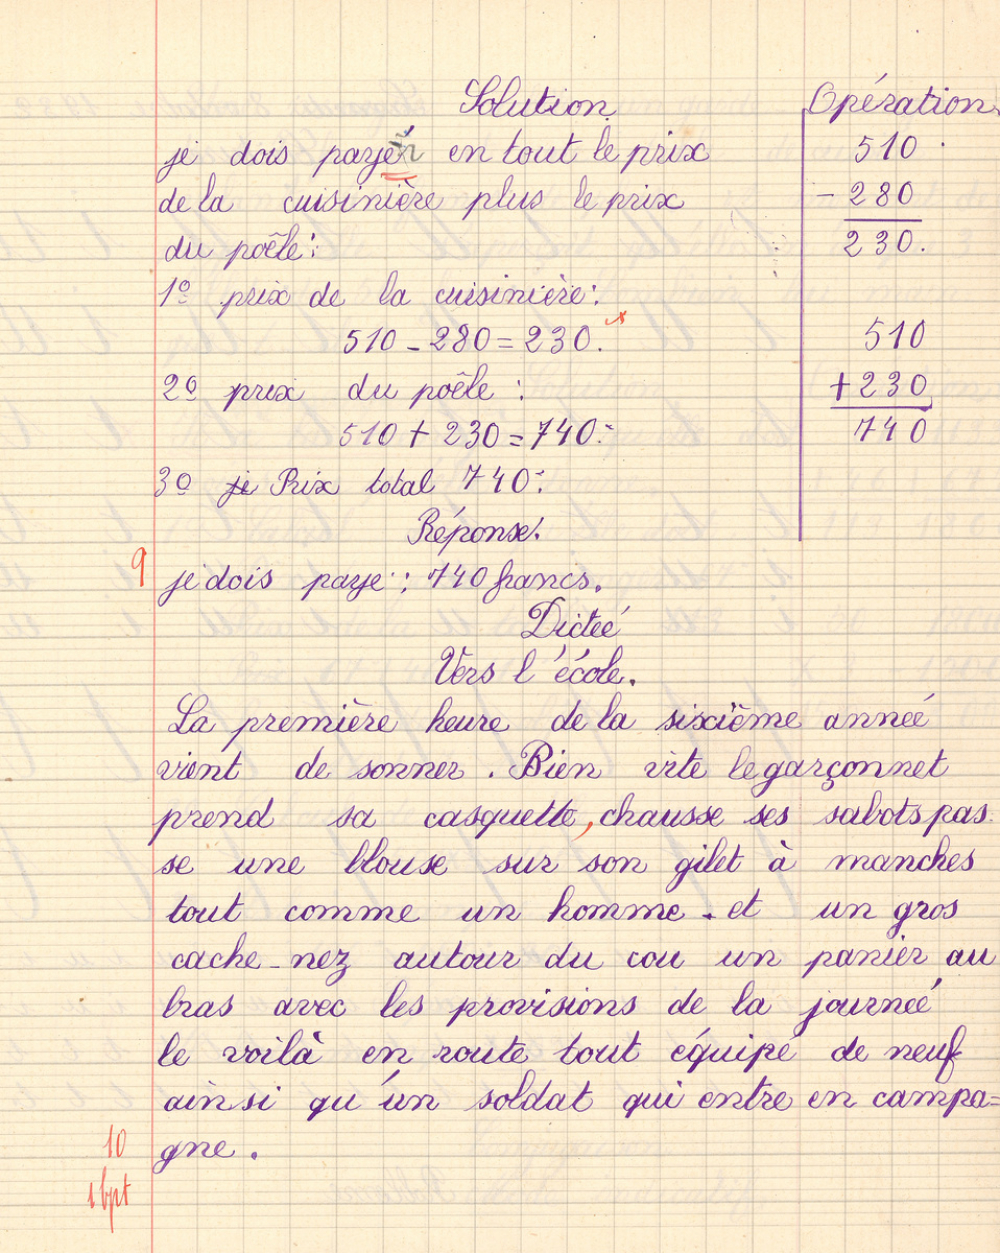 Solution
Opération
je dois payér en tout le prix
de la cuisinière plus le prix
du poêle:
1º prix de la cuisinière:
510 - 280 = 230.
2º prix du poêle :
510 + 230 = 740.
3º je Prix total 740:
510
- 280
230.
510
+ 230
740
Réponse.
9
je dois paye : 740 francs.
Dicteé
Vers l'école.
La première heure de la sixième anneé
vient de sonner. Bien vite le garçonnet
prend sa casquette, chausse ses sabots pas
se une blouse sur son gilet à manches
tout comme un homme. et un gros
cache-nez autour du cou un panier au
bras avec les provisions de la journeé
le voilà en route tout équipé de neuf
ainsi qu'un soldat qui entre en campa=
gne.
10
1 bpt